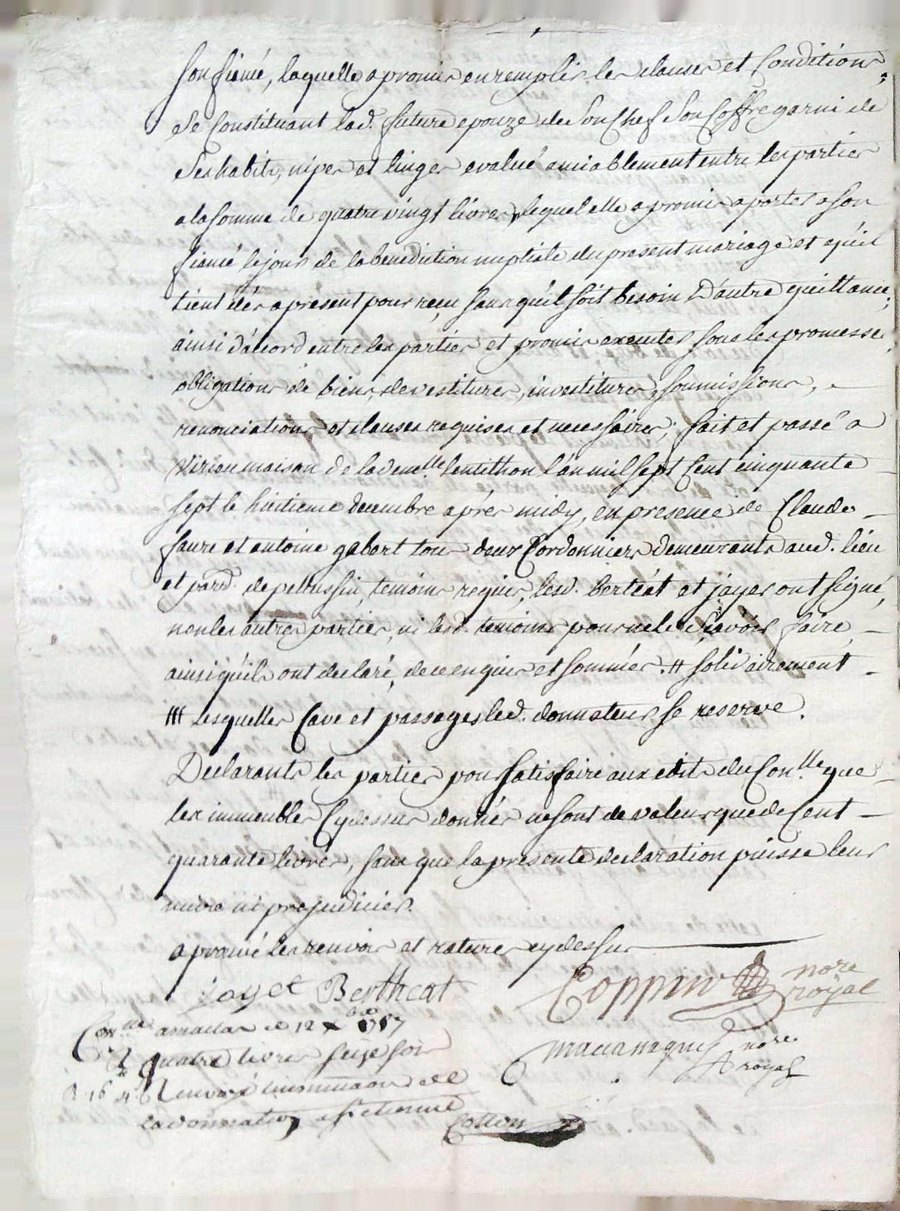 son fiancé, laquelle a promis en remplir les clauses et Conditions,
Se Constituant lad. future epouze de Son Chef Son Coffre garni de
Ses habits, nipes et linges evalué amiablement entre les parties
a la somme de quatre vingt livres, lequel elle a promis aporter a son
fiancé le jour de la bénédiction nuptiale du present mariage et qu'il
tient dés apresent pour reçu sans qu'il soit besoin D'autre quittance,
ainsi d'acord entre les parties et promis executer sous les promesses
obligations de biens, devestitures, investitures, soumissions,
renonciations et clauses requises et necessaires; fait et passé a
Virieu maison de la dem.lle Lentithon l'an mil sept Cent cinquante
sept le huitieme decembre aprés midy, en presence de Claude
faure et antoine gabert tous deux Cordonniers demeurants aud. lieu
et parr. de pelussin, temoins requis, lesd. berteat et jayet ont signé,
non les autres parties, ni lesd. temoins pour ne le sçavoir faire
ainsi qu'ils ont declaré, de ce enquis et sommés. # solidairement
lesquelles Cave et passages led. donnateur se reserve.
Declarants les parties pour satisfaire aux edits du Con.lle que
les immeubles Cydessus donnés ne sont de valeur que de Cent
quarante livres, sans que la presente declaration puisse leur
nuire ni prejudicier.
aprouvé les renvois et rature cydessus
jayet Bertheat
Coppin no.re royal
no.re royal
Con.llé a maclas ce 12 xbre 1757
quatre livres seize sols
renvoyé l'insinuaon de
la donnation a St etienne
Cotton